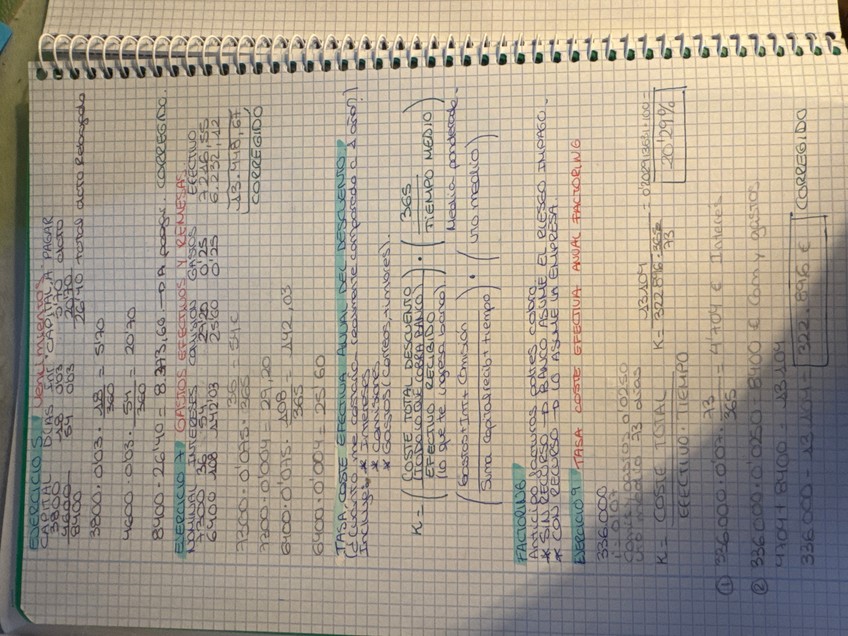 EJERCICIO 5. Vencimientos.
CAPITAL DIAS INT. CAPITAL A PAGAR
3800 18 0'03 5'70
4600 54 0'03 20'70
8400 26'40 total dcto
3800 · 0'03 · 18/360 = 5'70
4600 · 0'03 · 54/360 = 20'70
8400 - 26'40 = 8.373,60 → A pagar. CORREGIDO.
EJERCICIO 7 GASTOS EFECTIVOS Y REMESAS.
NOMINAL INTERESES COMISION GASTOS EFECTIVO
7300 36 54 29'20 0'25
6400 108 142'03 25'60 0'25 6.232,12
13.448,67
CORREGIDO
7300 · 0'075 · 36/365 = 54 €
7300 · 0'004 = 29,20
6400 · 0'075 · 108/365 = 142,03
6400 · 0'004 = 25'60
TASA COSTE EFECTIVA ANUAL DEL DESCUENTO.
(¿Cuánto me cuesta realmente comparado a 1 año?)
Incluye: * Intereses
* Comisiones
* Gastos (correos, timbres).
K = (COSTE TOTAL DESCUENTO (TODO LO QUE COBRA BANCO) / EFECTIVO RECIBIDO (lo que me ingresa banco)) · (365 / TIEMPO MEDIO)
Media ponderada.
(Gastos + Int + Comisión / Suma capital recib · tiempo) · (Vto medio)
FACTORING.
Anticipo facturas antes cobro
* SIN RECURSO → BANCO ASUME EL RIESGO IMPAGO.
* CON RECURSO → LO ASUME LA EMPRESA.
EJERCICIO 9 TASA COSTE EFECTIVA ANUAL FACTORING
336.000
i = 0'07
Com y gastos 0'0250
Vto medio 73 dias
K = COSTE TOTAL / EFECTIVO · TIEMPO
K = 13.104 / 322.896 · 365/73 = 0'2029 · 100 = 20'29%
① 336.000 · 0'07 · 73/365 = 4'704 € Interes
② 336.000 · 0'0250 = 8400 € Com y gastos
4704 + 8400 = 13.104
336.000 - 13.104 = 322.896 € CORREGIDO